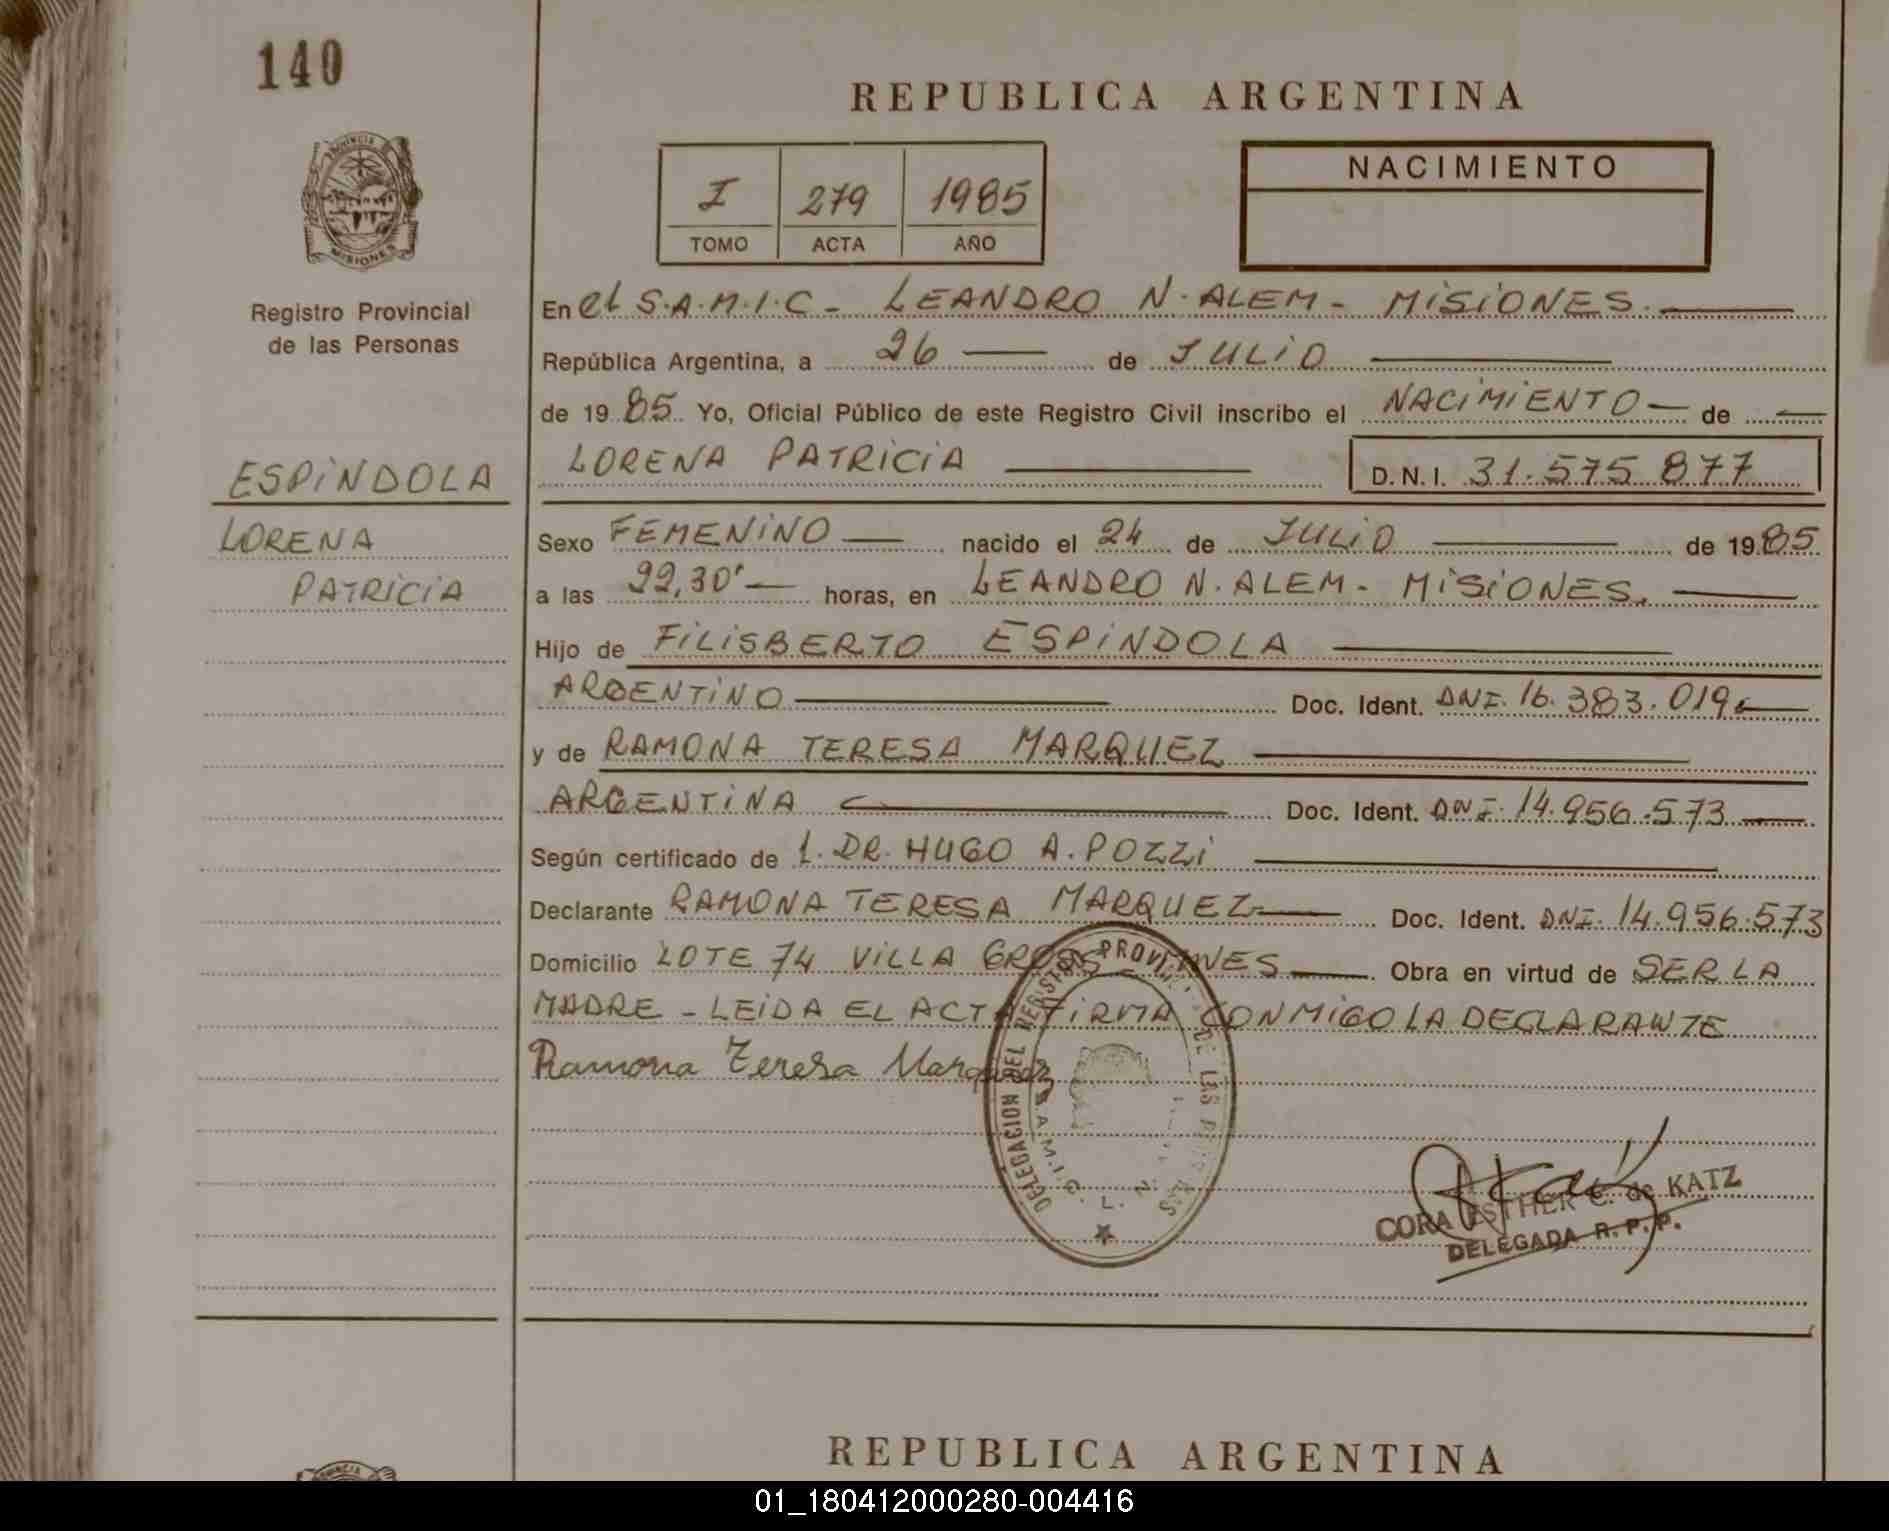 140
REPUBLICA ARGENTINA
PROVINCIA
MISIONES
I 279 1985
TOMO ACTA AÑO
NACIMIENTO
Registro Provincial
de las Personas
En el S.A.M.I.C - LEANDRO N. ALEM - MISIONES.
República Argentina, a 26 de JULIO
de 1985 Yo, Oficial Público de este Registro Civil inscribo el NACIMIENTO de
LORENA PATRICIA D.N.I. 31.575.877
ESPINDOLA
LORENA
PATRICIA
Sexo FEMENINO nacido el 24 de JULIO de 1985
a las 22,30' horas, en LEANDRO N. ALEM - MISIONES.
Hijo de FILISBERTO ESPINDOLA
ARGENTINO Doc. Ident. DNI. 16.383.019
y de RAMONA TERESA MARQUEZ
ARGENTINA Doc. Ident. DNI. 14.956.573
Según certificado de 1. DR. HUGO A. POZZI
Declarante RAMONA TERESA MARQUEZ Doc. Ident. DNI. 14.956.573
Domicilio LOTE 74 VILLA Obra en virtud de SER LA
MADRE - LEIDA EL ACTA FIRMA CONMIGO LA DECLARANTE
Ramona Teresa Marquez
DELEGACION DEL REGISTRO PROVINCIAL DE LAS
S.A.M.I.C. L. N.
CORA ESTHER C. de KATZ
DELEGADA R. P. P.
REPUBLICA ARGENTINA
01_180412000280-004416